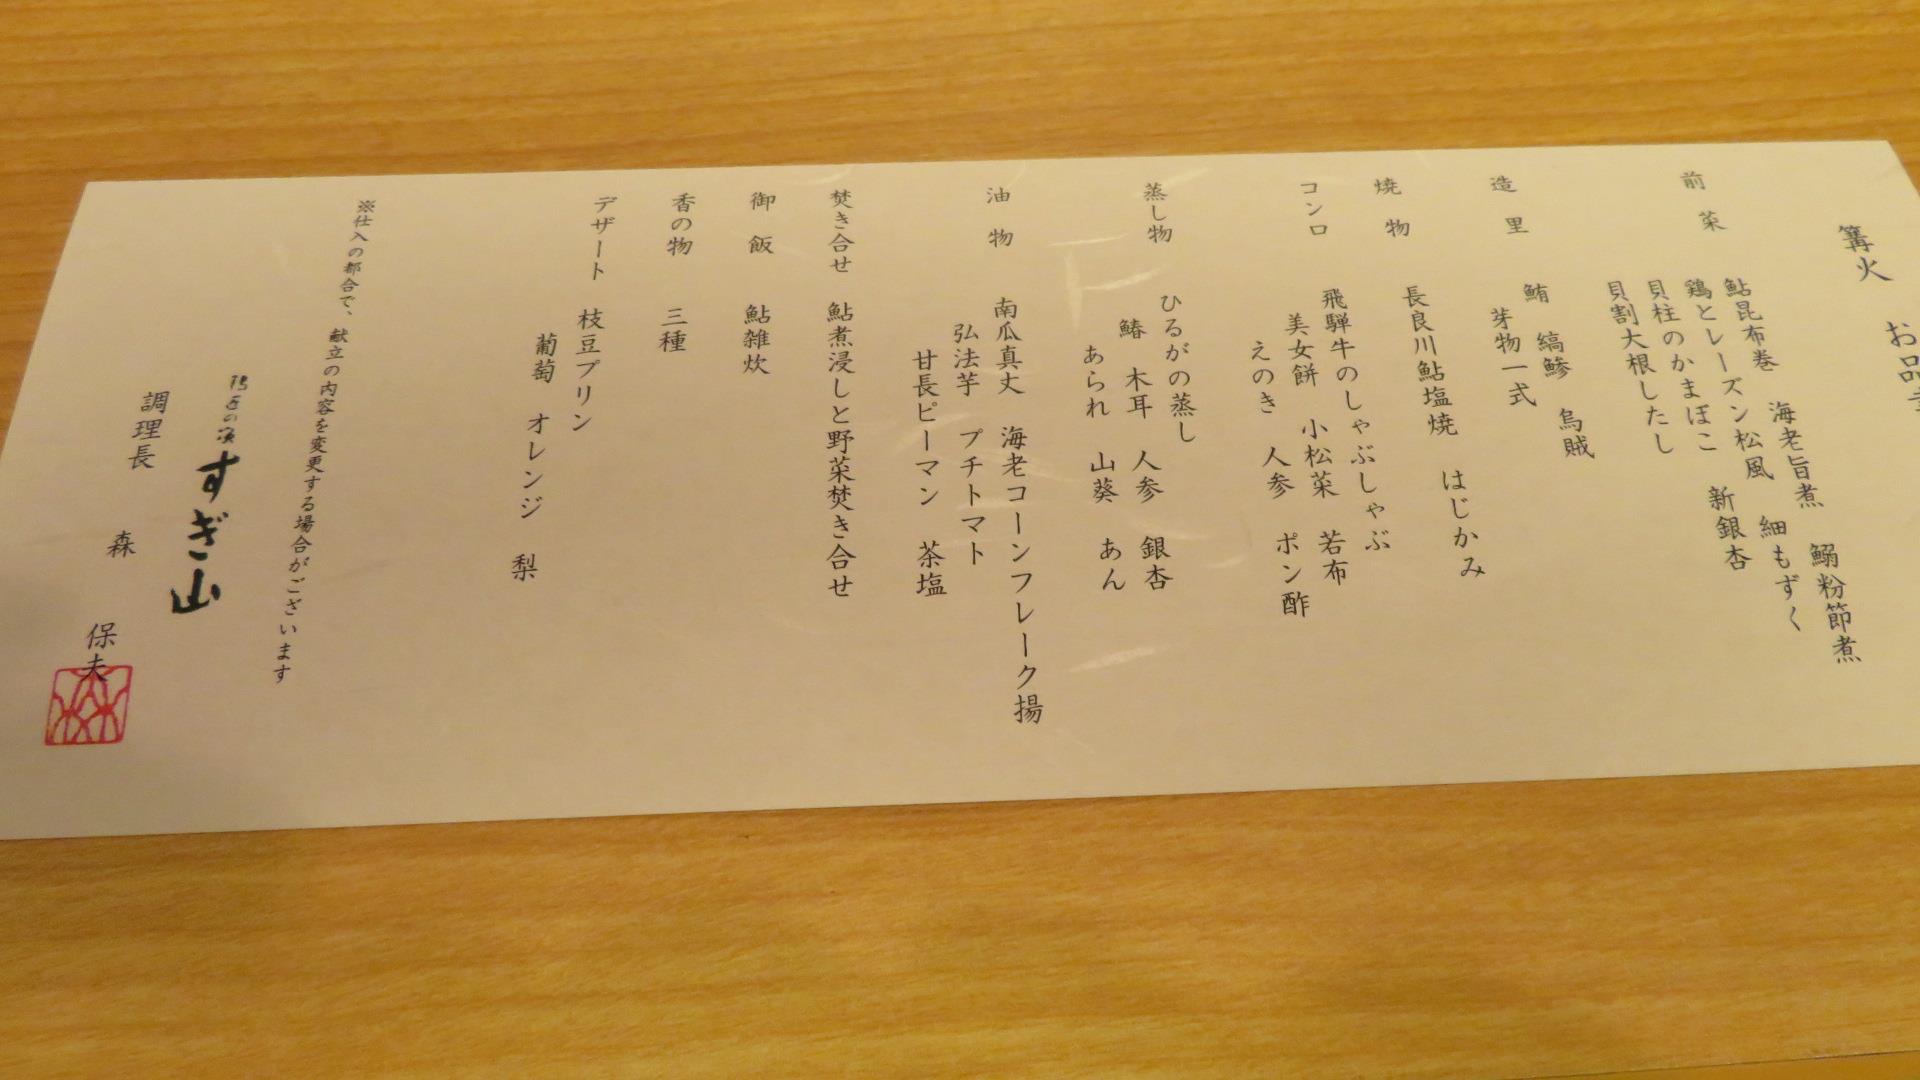 篝火 お品書
前菜 鮎昆布巻 海老旨煮 鰯粉節煮
鶏とレーズン松風 細もずく
貝柱のかまぼこ 新銀杏
貝割大根したし
造里 鮪 縞鯵 烏賊
芽物一式
焼物 長良川鮎塩焼 はじかみ
コンロ 飛騨牛のしゃぶしゃぶ
美女餅 小松菜 若布
えのき 人参 ポン酢
蒸し物 ひるがの蒸し
鰆 木耳 人参 銀杏
あられ 山葵 あん
油物 南瓜真丈 海老コーンフレーク揚
弘法芋 プチトマト
甘長ピーマン 茶塩
焚き合せ 鮎煮浸しと野菜焚き合せ
御飯 鮎雑炊
香の物 三種
デザート 枝豆プリン
葡萄 オレンジ 梨
※仕入の都合で、献立の内容を変更する場合がございます
すぎ山
調理長 森 保夫